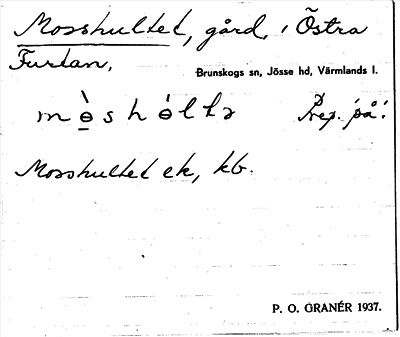 Mosshultet, gård, i Östra
Furtan,
Brunskogs sn, Jösse hd, Värmlands l.
mɵ̠̀shɵ́ltə Prep. på!
Mosshultet ek, kb.
P. O. GRANÉR 1937.